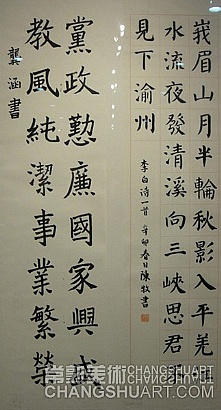 峩眉山月半輪秋影入平羌江
水流夜發清溪向三峽思君不
見下渝州
李白诗一首 辛卯春日陳牧書
黨政懃廉國家興盛
教風純潔事業繁榮
龔涵書
常熟美術
CHANGSHUART.COM